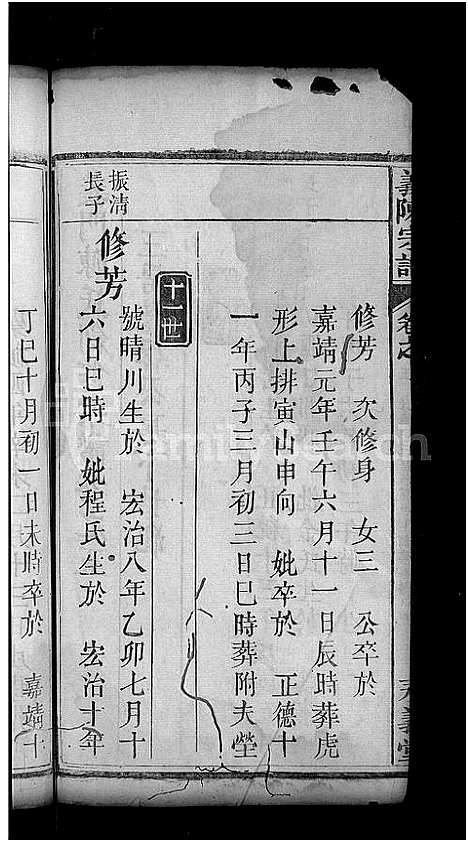 義陳宗譜
修芳 次修身 女三 公卒於
嘉靖元年壬午六月十一日辰時葬虎
形上排寅山申向 妣卒於 正德十
一年丙子三月初三日巳時葬附夫塋
十一世
振清
長子
修芳
號晴川生於 宏治八年乙卯七月十
六日巳時 妣程氏生於 宏治十年
丁巳十月初一日未時卒於 嘉靖十